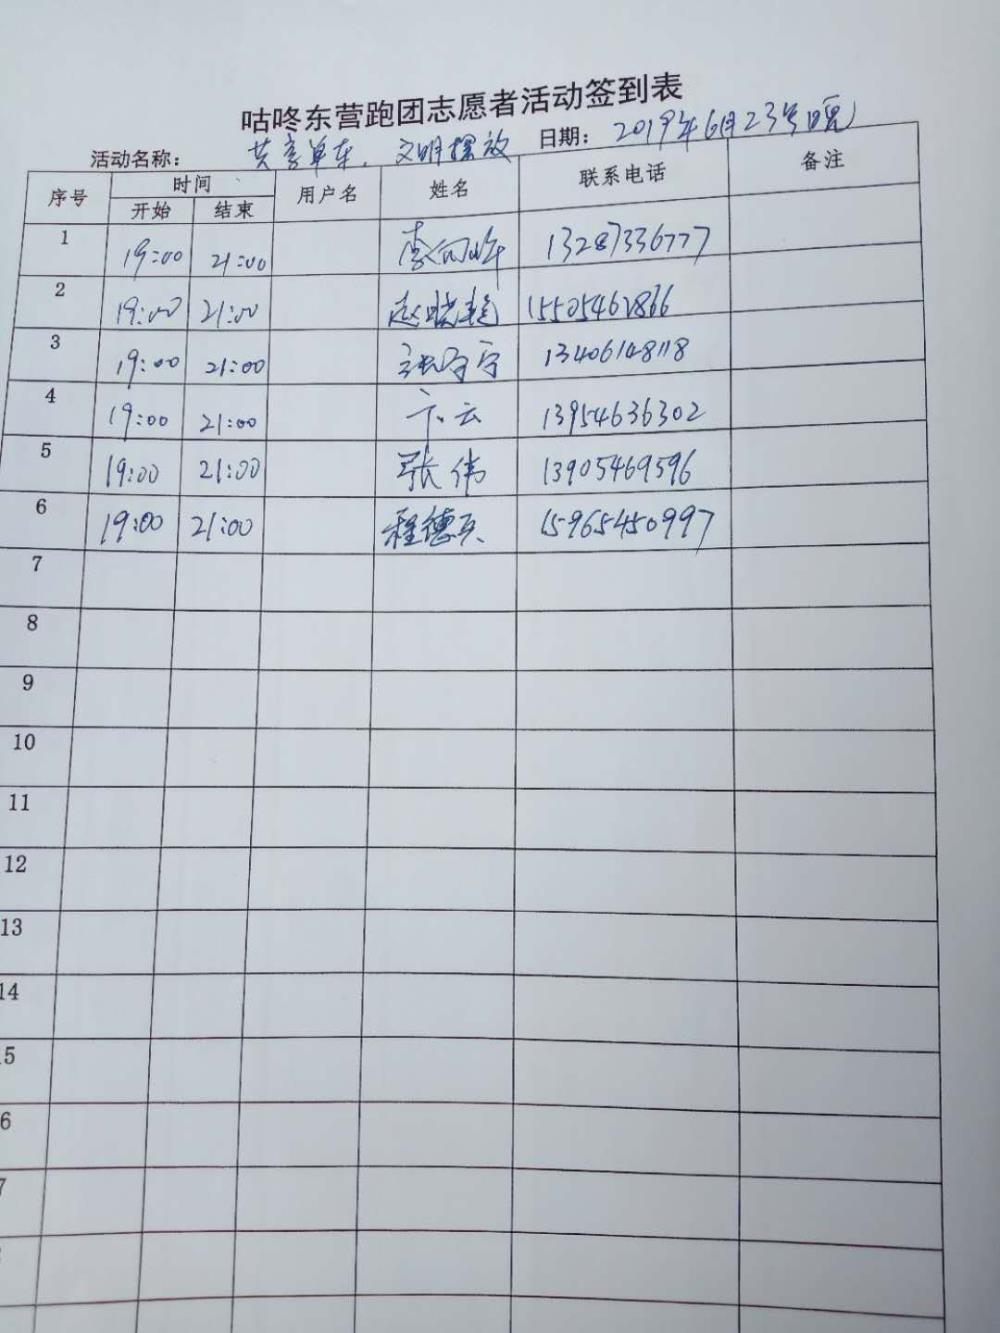 咕咚东营跑团志愿者活动签到表
活动名称： 共享单车、文明摆放 日期： 2019年6月23号晚
序号 时间 用户名 姓名 联系电话 备注
开始 结束
1 19:00 21:00 李向峰 13287336777
2 19:00 21:00 赵晓艳 15505462866
3 19:00 21:00 13406148118
4 19:00 21:00 卞云 13954636302
5 19:00 21:00 张伟 13905469596
6 19:00 21:00 程德兵 15965450997
7
8
9
10
11
12
13
14
5
6
7